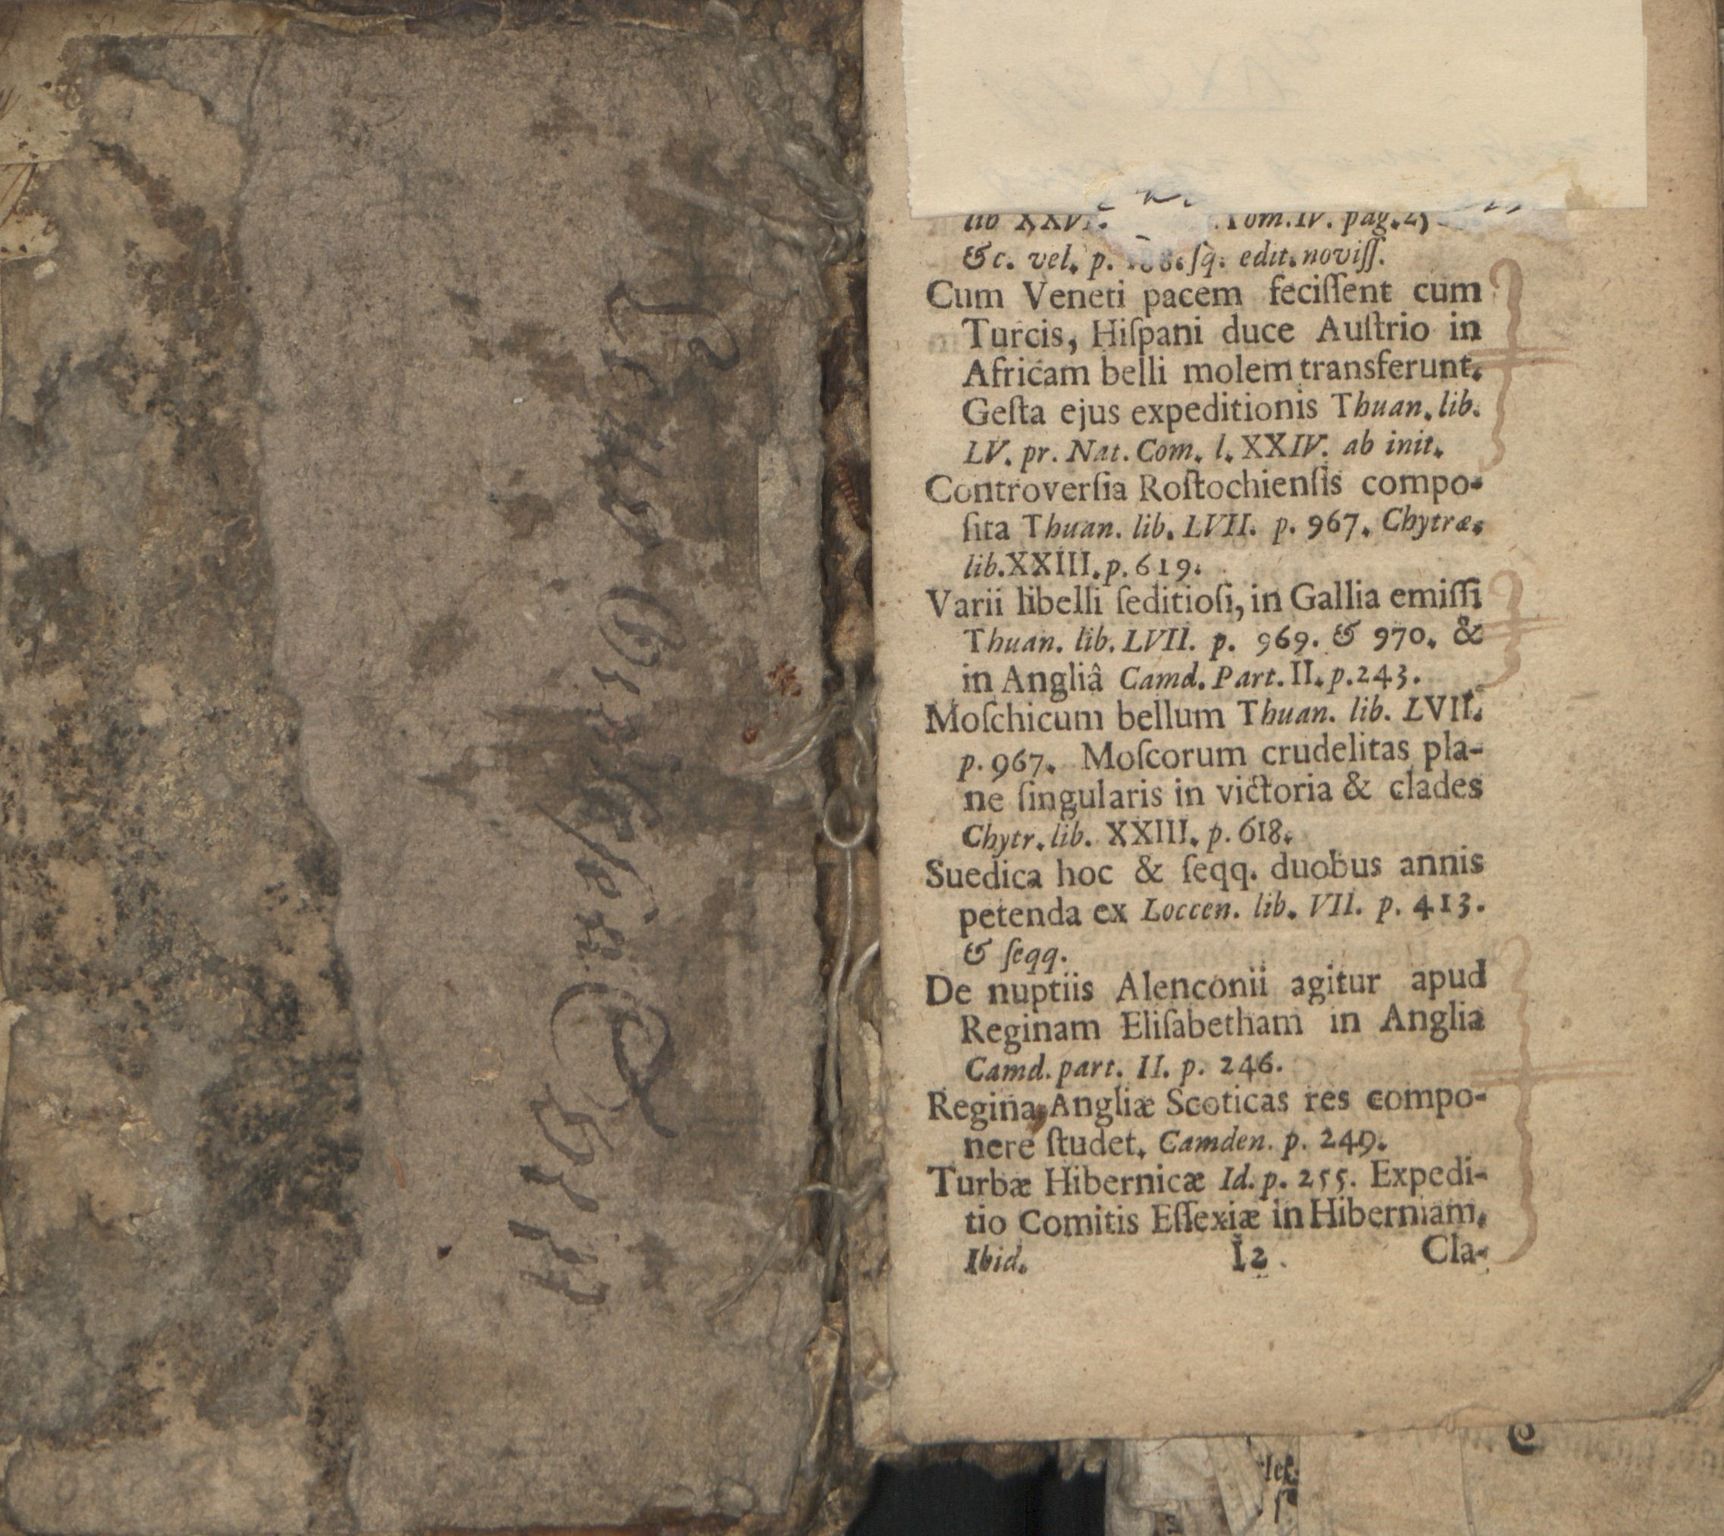 lib XXVI. Tom.IV. pag.
&c. vel. p. ſq. edit. noviſſ.
Cum Veneti pacem feciſſent cum
Turcis, Hiſpani duce Auſtrio in
Africam belli molem transferunt.
Geſta ejus expeditionis Thuan. lib.
LV. pr. Nat. Com. l. XXIV. ab init.
Controverſia Roſtochienſis compo-
ſita Thuan. lib. LVII. p. 967. Chytræ.
lib. XXIII. p. 619.
Varii libelli ſeditioſi, in Gallia emiſſi
Thuan. lib. LVII. p. 969. & 970. &
in Angliâ Camd. Part. II. p. 243.
Moſchicum bellum Thuan. lib. LVII.
p. 967. Moſcorum crudelitas pla-
ne ſingularis in victoria & clades
Chytr. lib. XXIII. p. 618.
Suedica hoc & ſeqq. duobus annis
petenda ex Loccen. lib. VII. p. 413.
& ſeqq.
De nuptiis Alenconii agitur apud
Reginam Eliſabetham in Anglia
Camd. part. II. p. 246.
Regina Angliæ Scoticas res compo-
nere ſtudet. Camden. p. 249.
Turbæ Hibernicæ Id. p. 255. Expedi-
tio Comitis Eſſexiæ in Hiberniam.
Ibid. I2. Cla-